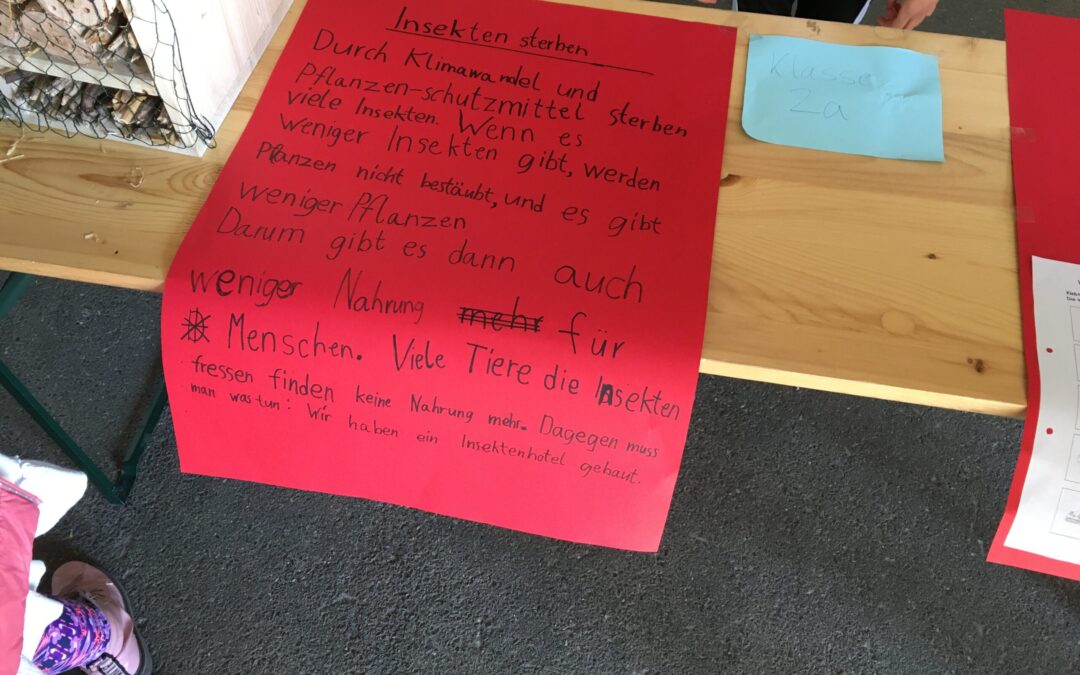 Insekten sterben
Durch Klimawandel und
Pflanzen-schutzmittel sterben
viele Insekten. Wenn es
weniger Insekten gibt, werden
Pflanzen nicht bestäubt, und es gibt
weniger Pflanzen
Darum gibt es dann auch
weniger Nahrung mehr für
Menschen. Viele Tiere die Insekten
fressen finden keine Nahrung mehr. Dagegen muss
man was tun: Wir haben ein Insektenhotel gebaut.
Klasse
2a